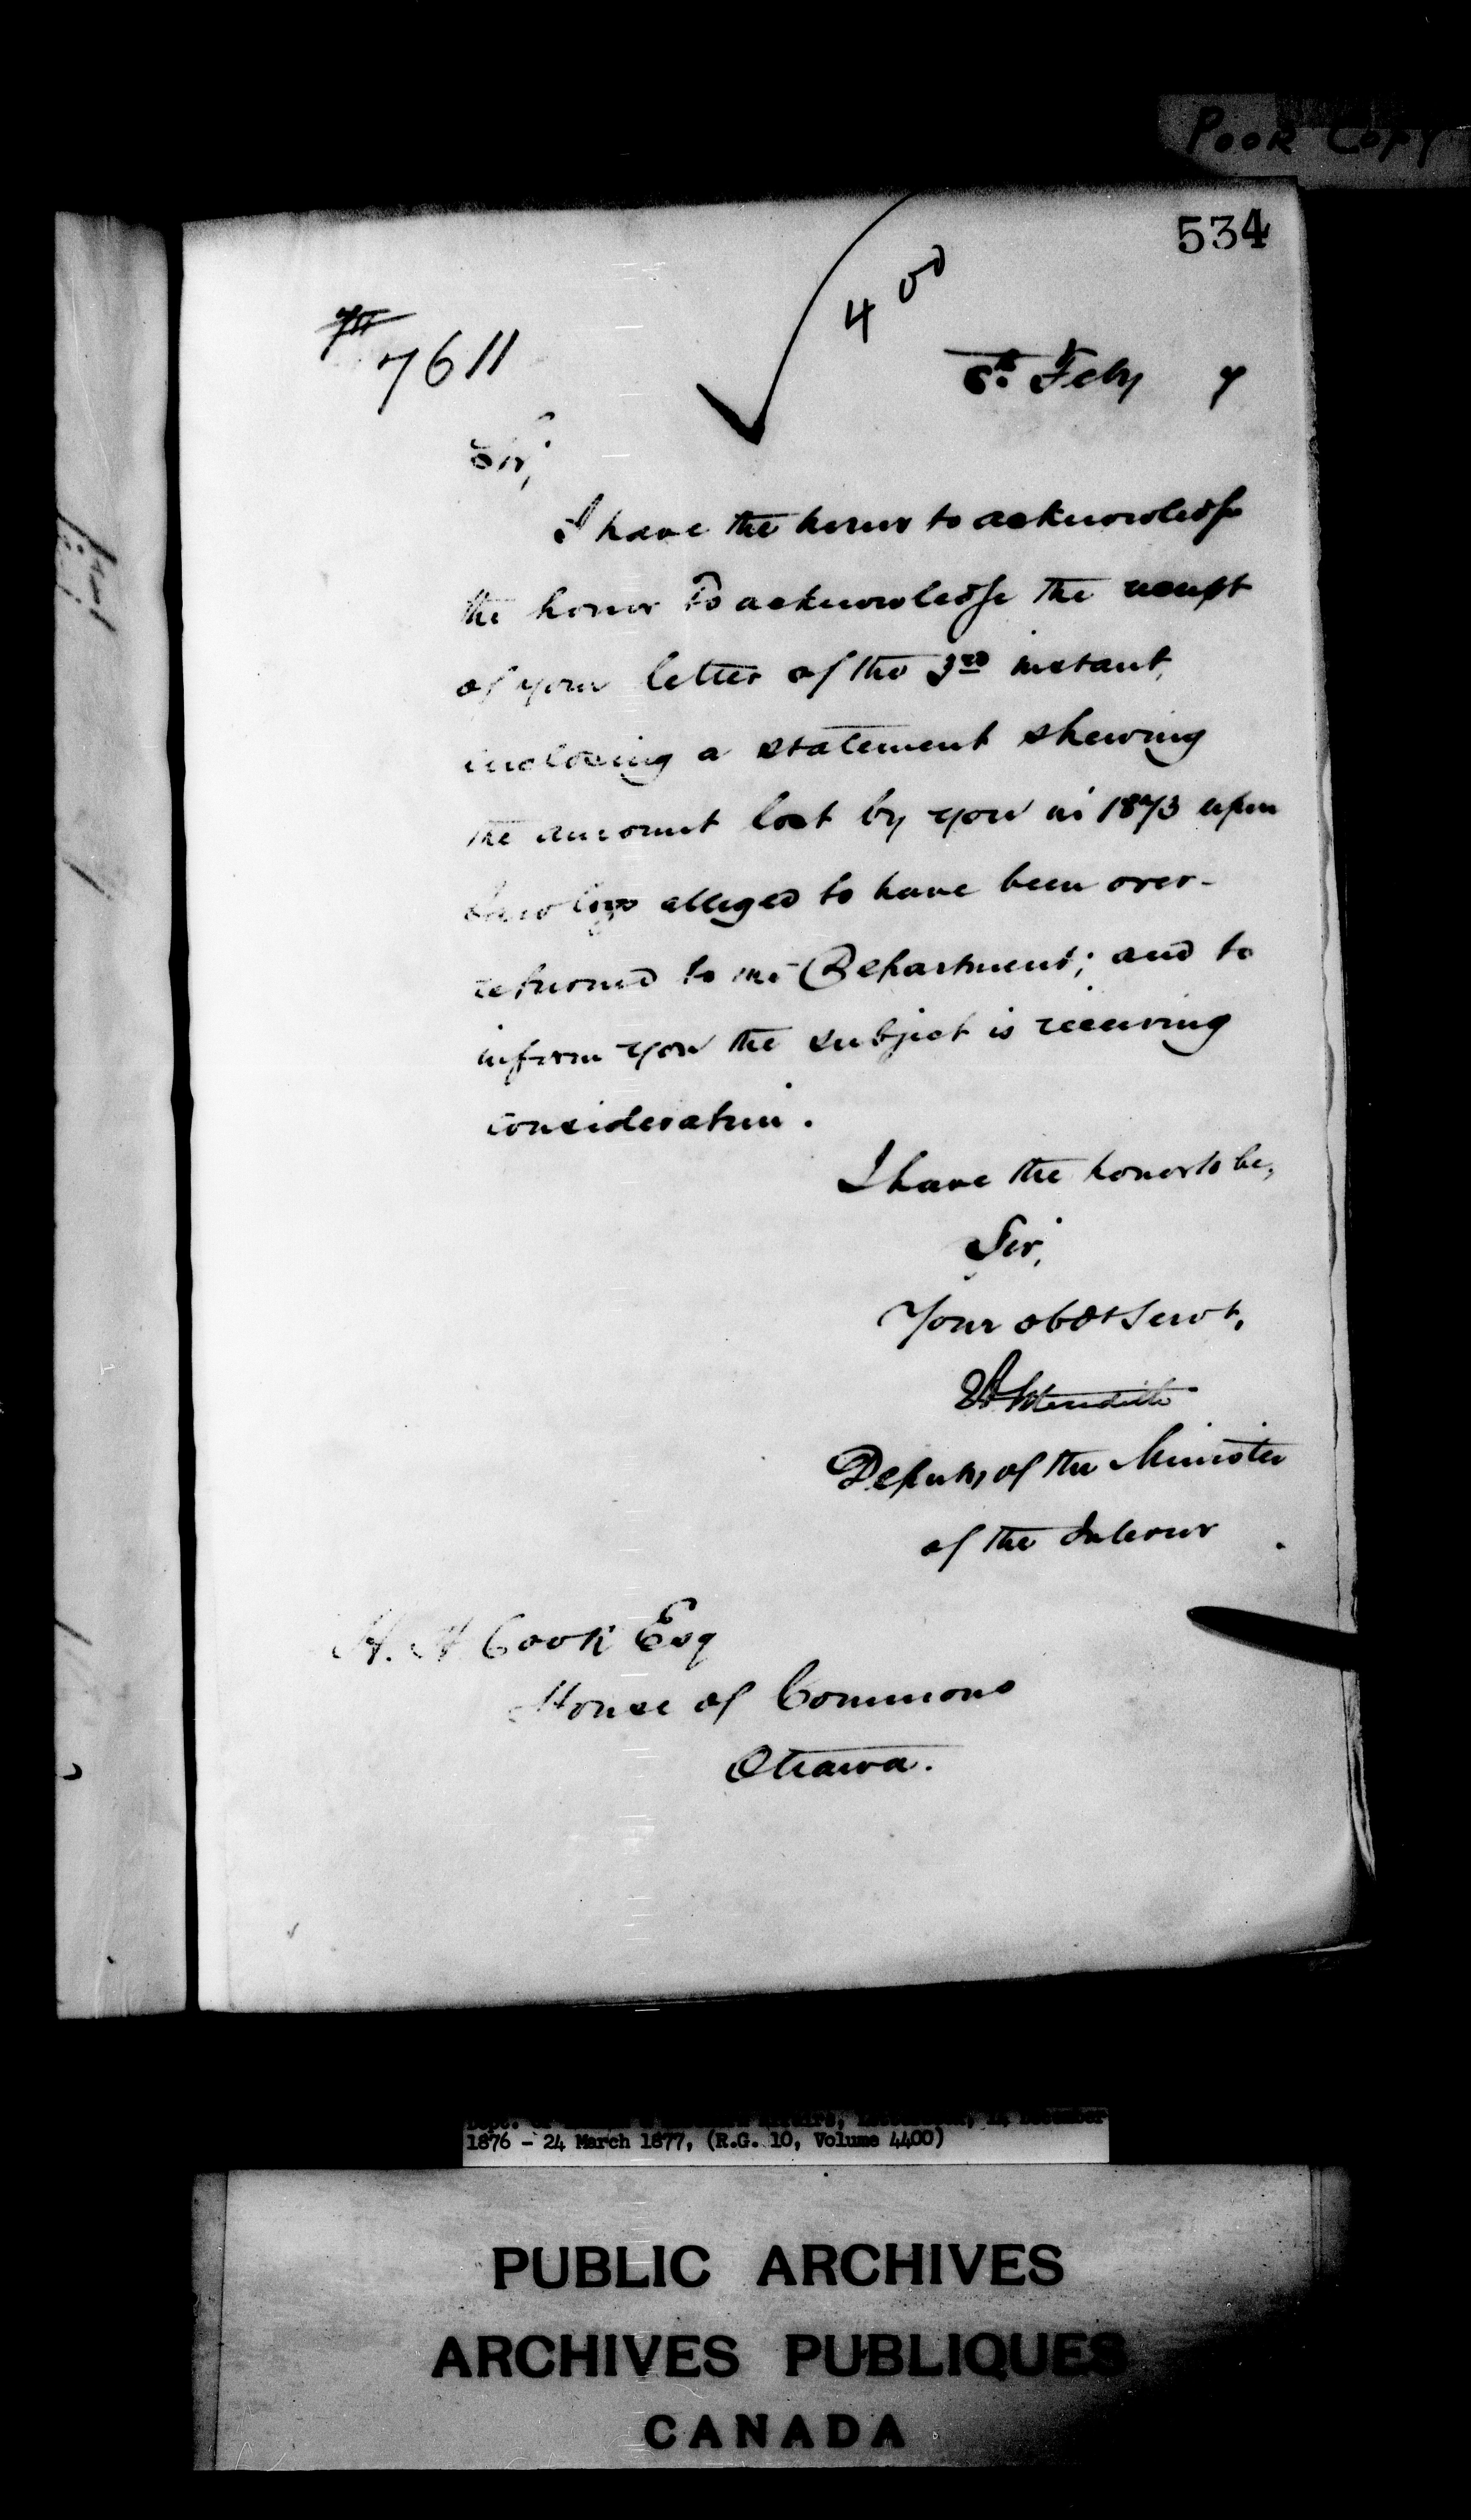 POOR COPY
534
400
7611
6th Feby 7
Sir,
I have the honor to acknowledge
the honor to acknowledge the receipt
of your letter of the 3rd instant,
inclosing a statement shewing
the amount lost by you in 1873 upon
Saw logs alleged to have been over-
returned to the Department; and to
inform you the subject is receiving
consideration.
I have the honor to be,
Sir,
Your obdt Servt,
Meredith
Deputy of the Minister
of the Interior
H. H Cook Esq
House of Commons
Ottawa.
1876 - 24 March 1877, (R.G. 10, Volume 4400)
PUBLIC ARCHIVES
ARCHIVES PUBLIQUES
CANADA